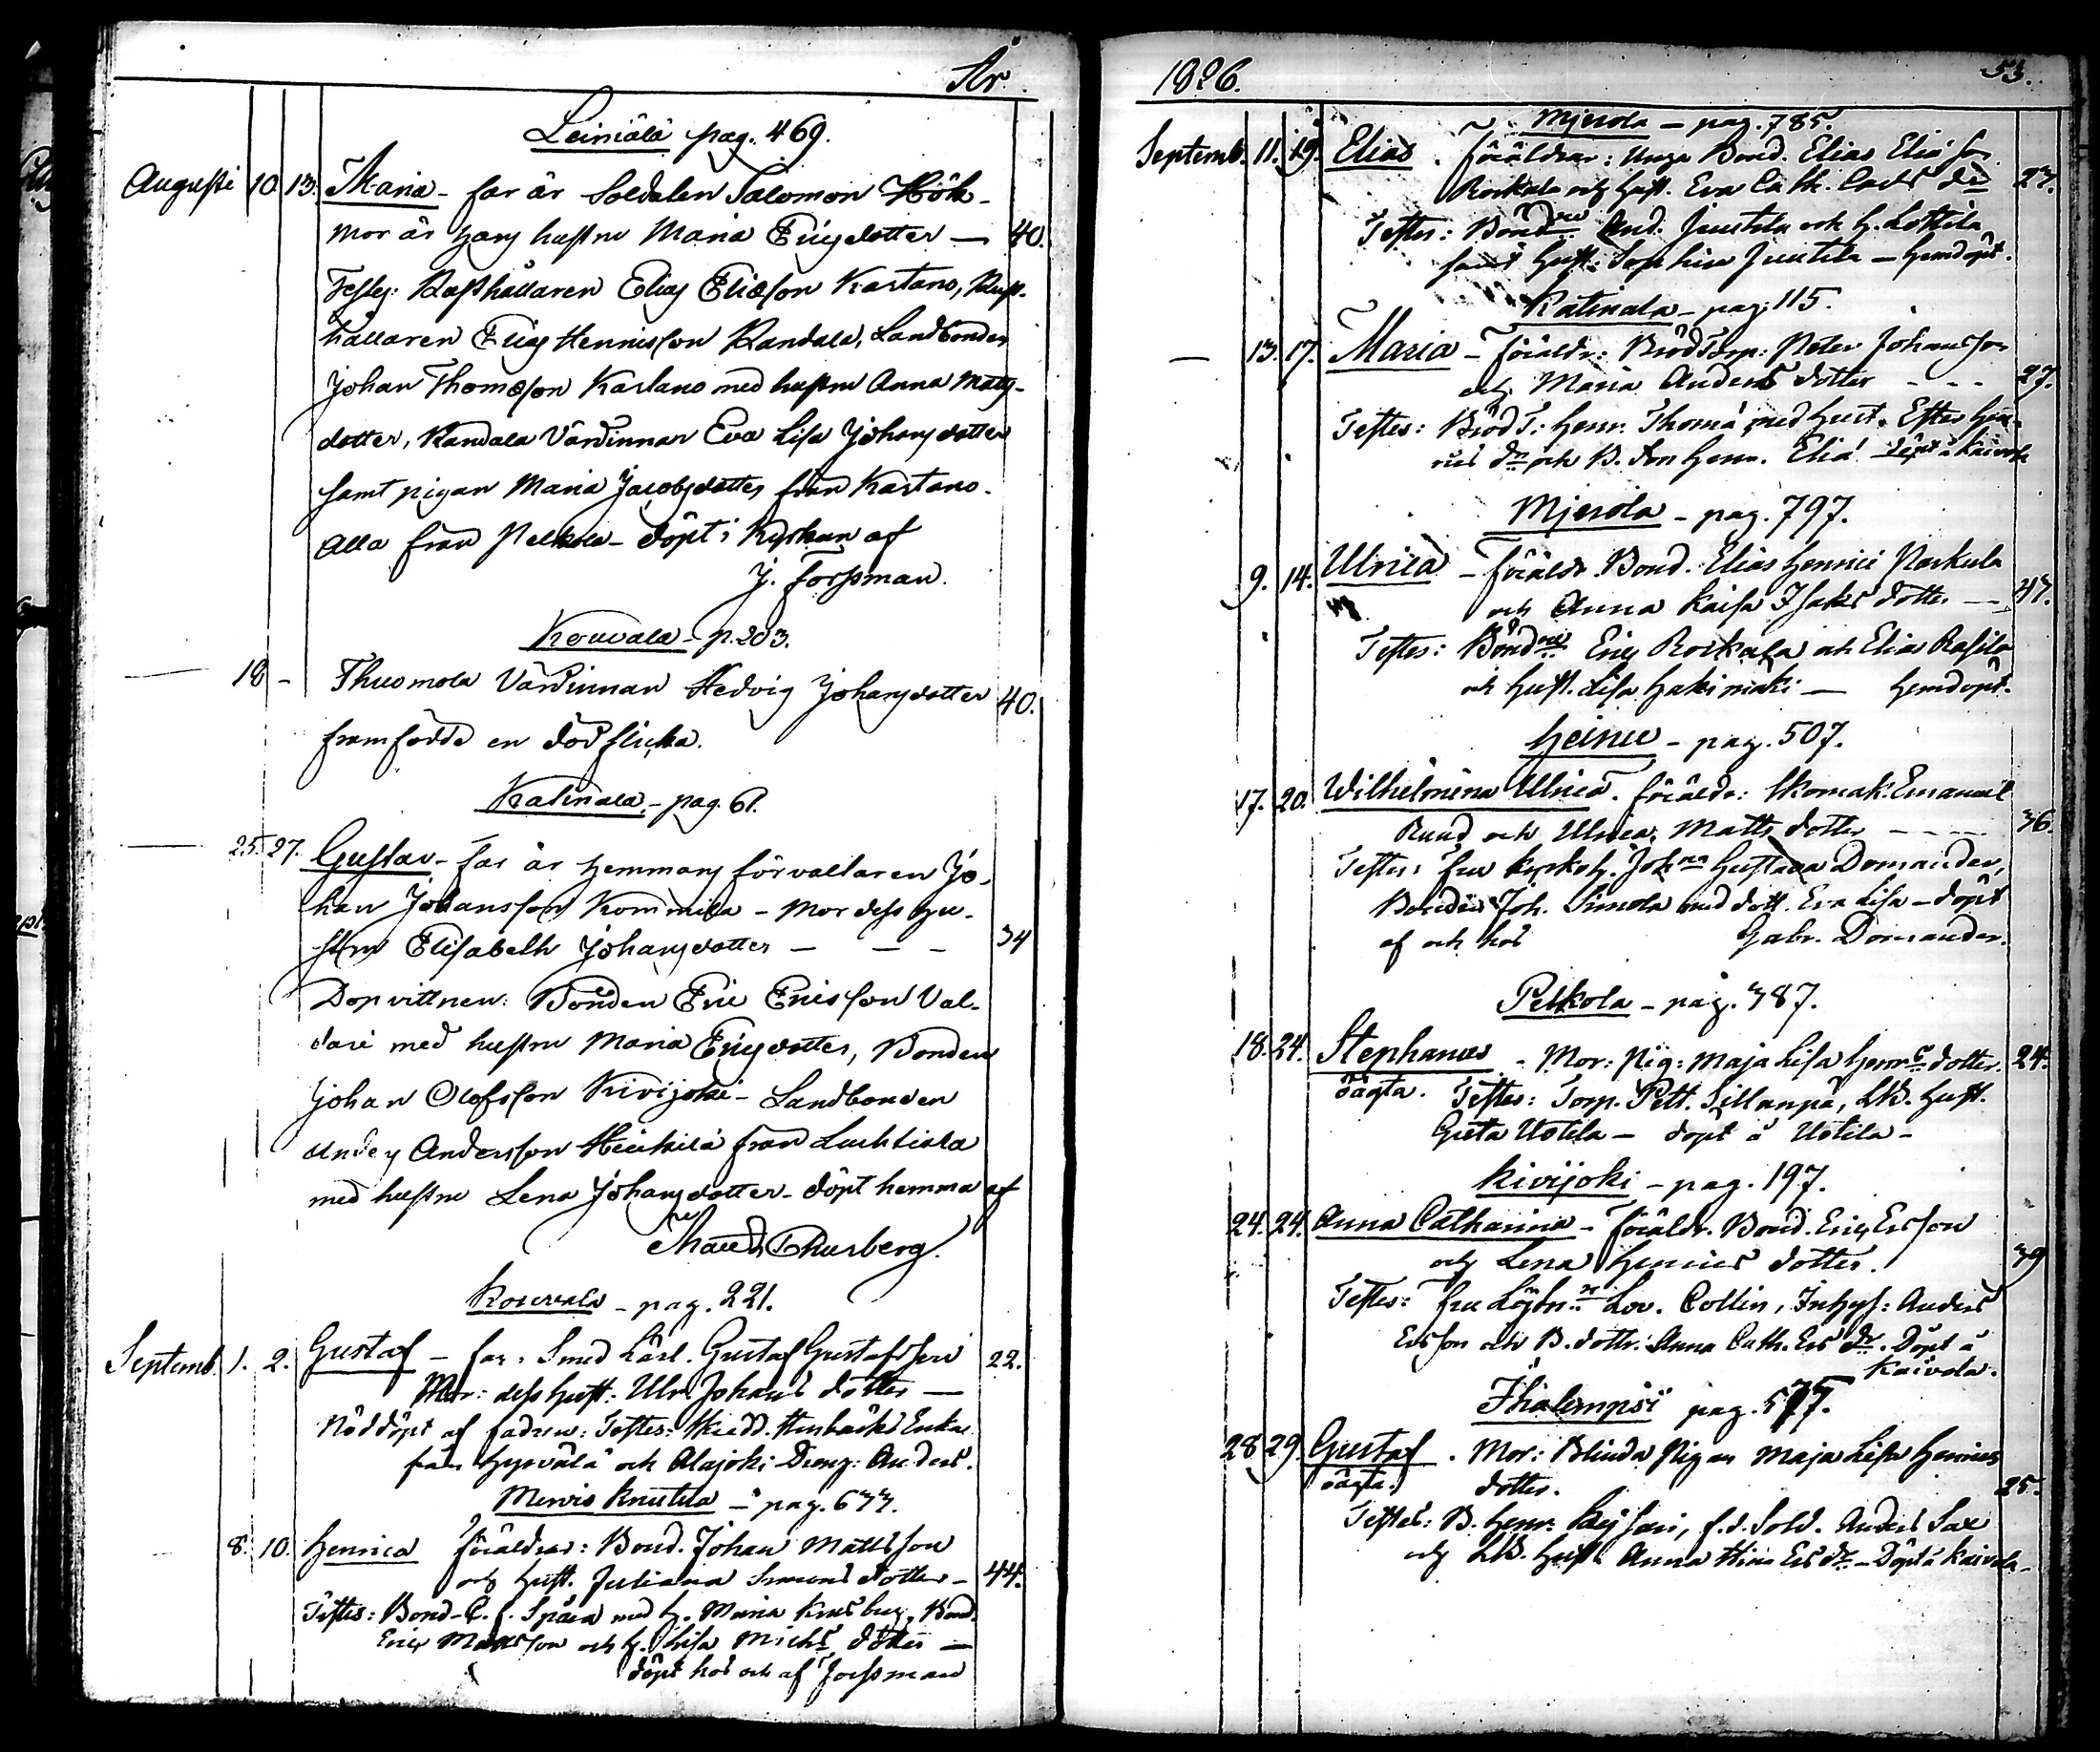 År
Leiniälä pag. 469.
Augusti 10. 13. Maria - far är Soldaten Salomon Hök -
mor är hans hustru Maria Ericsdotter — 40.
Testes: Rusthållaren Elias Eliasson Kartano, Rust-
hållaren Eric Henricsson Kandala, Landbonden
Johan Thomasson Kartano med hustru Anna Mats-
dotter, Kandala Värdinnan Eva Lisa Johansdotter
samt pigan Maria Jacobsdotter från Kartano.
Alla från Pelkola - döpt i Kyrkan af
J. Forssman.
Kouvala - p. 203.
— 18 - Thuomola Värdinnan Hedvig Johansdotter 40.
framfödde en död flicka.
Katinala - pag. 61.
— 25. 27. Gustav - far är hemmans förvaltaren Jo-
han Johansson Kommila - Mor dess hu-
stru Elisabeth Johansdotter — — - 34
Dopvittnen: Bonden Eric Ericsson Val-
dari med hustru Maria Ericsdotter, Bonden
Johan Olofsson Kivijoki - Landbonden
Anders Andersson Heikkilä från Luhtiala
med hustru Lena Johansdotter - döpt hemma af
Thusberg.
Kouvala - pag. 221.
Septemb. 1. 2. Gustaf - far: Smed Lärl. Gustaf Gustafsson 22.
Mor: dess hust: Ulr. Johans dotter —
Nöddöpt af fadren: Testes: Enka
från Hyrvälä och Alajoki Dreng: Anders.
Mervis Knutila - pag. 633.
8. 10. Henrica föräldrar: Bond. Johan Mattsson
och hust. Juliana Simons dotter - 44.
Testes: Bond. C. f. Spåra med h. Maria Knutsberg, Bond.
Eric Matsson och h. Lisa Michs dotter —
döpt hos och af Forssman
1826. 53.
Mjerola - pag. 785.
Septemb. 11. 19. Elias. föräldrar: Unga Bond. Elias Eliæ son
Rorkala och hust. Eva Cath. Carls dr 27.
Testes: Bönd. And. Juutila och H. Lottila
samt hust: Sophia Juutila - hemdöpt.
Katinala - pag. 115.
— 13. 17. Maria - föräldr: Bröd Torp: Peter Johansson
och Maria Anders dotter - - - 27.
Testes: Bröd T: Henr. Thomæ med hust. Ester Hen-
rics dr och B. son Henr. Eliæ döpt å Kaivola
Mjerola - pag. 797.
9. 14. Ulrica - föräldr. Bond. Elias Henrici Parkula
och Anna Kaisa Isaks dotter — 47.
Testes: Bönd. Eric Rorkala och Elias Rasila
och hust. Lisa Hakimäki — hemdöpt.
Heinu - pag. 507.
17. 20. Wilhelmina Ulrica. föräldr: Skomak: Emanuel
Rund och Ulrica Matts dotter - - - 36.
Testes: fru kyrkoh. Joh. Gustava Domander,
Bonden Joh. Simola med dott. Eva Lisa - döpt
af och hos Gabr. Domander.
Pelkola - pag. 387.
18. 24. Stephanus - Mor: Pig: Maja Lisa Henrs dotter. 24.
oägta. Testes: Torp. Pett. Sillanpä, LB. hust.
Greta Uotila - döpt å Uotila -
Kivijoki - pag. 197.
24. 24. Anna Catharina - föräldr. Bond. Eric Ersson
och Lena Henrics dotter. 39
Testes: fru Löjtn. Lov. Collin, Inhys: Anders
Ersson och B. dottr: Anna Cath. Ers dr. Döpt å
Kaivola.
Ihalempsi pag. 577.
28 29. Gustaf. Mor: Blinda Pigan Maja Lisa Henrics
oägta. dotter. 25.
Testes: B. Henr. f. d. Sold. Anders Sax
och LB. hust. Anna Stina Ers dr - Döpt å Kaivola -